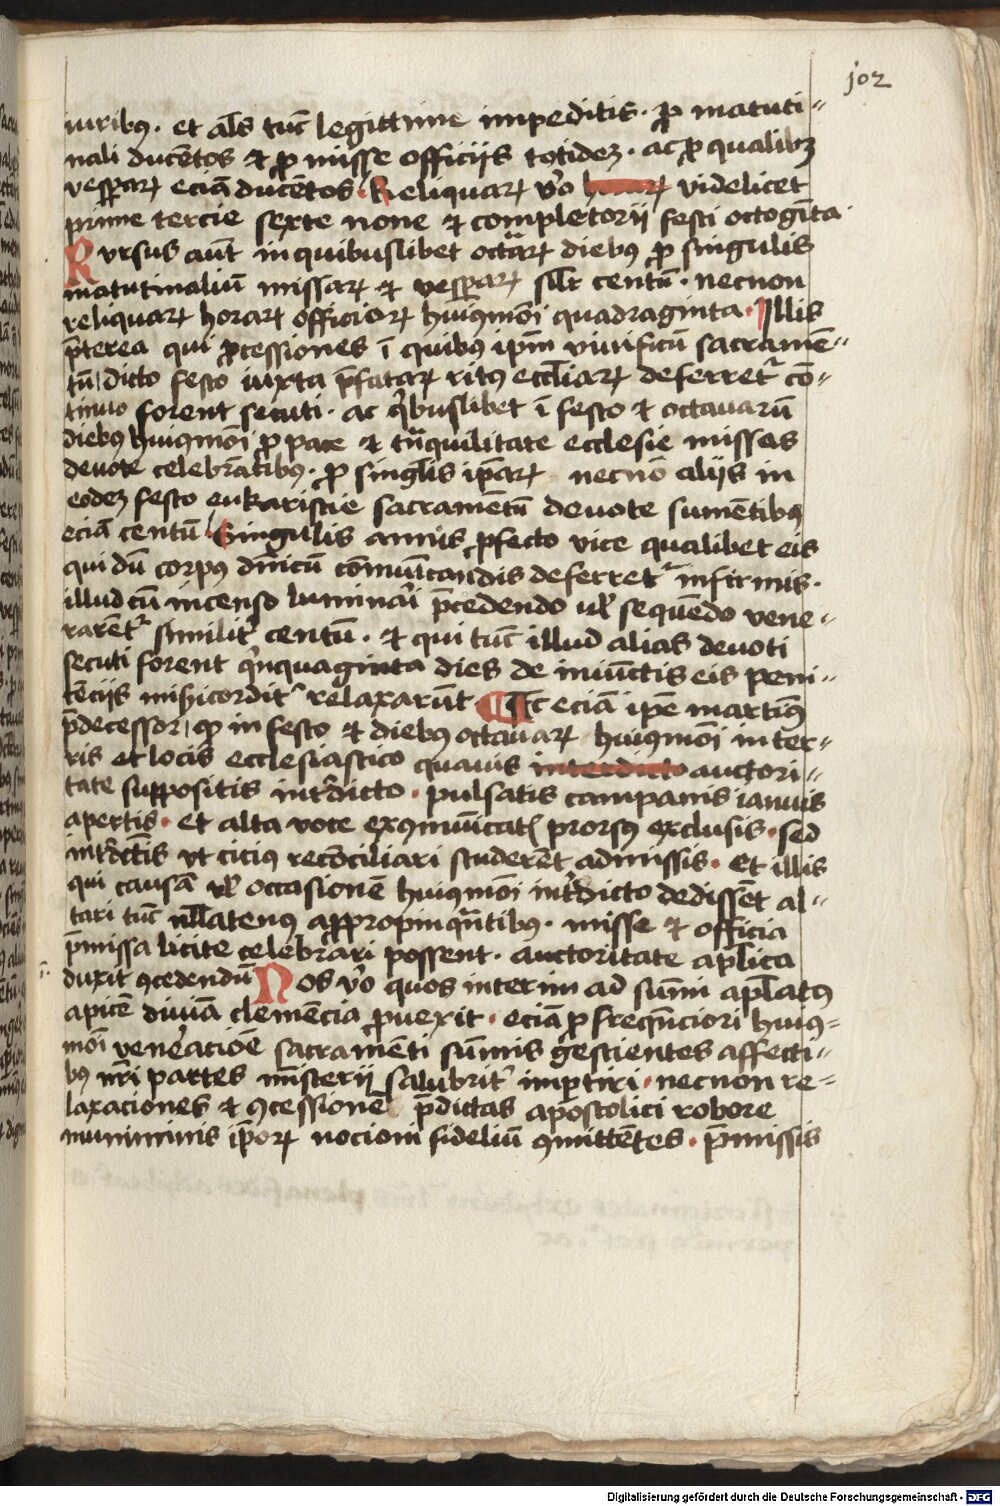 102
iuribus. et als tūc legittime impeditis. ꝓ matuti-
nali ducētos ⁊ ꝓ misse officijs totidez. ac ꝓ qualibz
vesparꝝ eciā ducētos. Reliquarꝝ v̄o videlicet
prime tercie sexte none ⁊ completorij festi octogīta
Rursus aūt in quibuslibet octarꝝ diebꝰ ꝓ singulis
matutinaliū missarꝝ ⁊ vesparꝝ silr centū. necnon
reliquarꝝ horarꝝ officiorꝝ huiꝰmōi quadraginta. Illis
p̄terea qui ꝓcessiones ī quibus ipm̄ viuificū sacramē-
tū dicto festo iuxta p̄fatarꝝ ritꝰ eccliarꝝ deferretr cō-
tinuo forent secuti. ac qibuslibet ī festo ⁊ octauarū
diebꝰ huiꝰmōi ꝓ pace ⁊ trāquilitate ecclesie missas
deuote celebrātibꝰ. ꝓ singlis ipārꝝ necno alijs in
eodez festo eukaristie sacramētū deuote sumētibꝰ
eciā centū Singulis annis ꝓfecto vice qualibet eis
qui dū corpꝰ dn̄icū cōmūicandis deferretr infirmis.
illud cū incenso luminari p̄cedendo ul̄ sequēdo vene-
rarētr similitr centū. ⁊ qui tūc illud alias deuoti
secuti forent qinquaginta dies de iniūctis eis peni-
tēcijs misicorditr relaxarūt ¶ Ac eciā ipē martinꝰ
p̄decessor ꝙ in festo ⁊ diebꝰ octauarꝝ huiꝰmōi in ter-
ris et locis ecclesiastico quauis interdicto auctori-
tate suppositis intr̄dicto. pulsatis campanis ianuis
apertis. et alta voce exꝯmūicatis prorsꝰ exclusis. sed
intr̄dictis vt citiꝰ recōciliari studerēt admissis. et illis
qui causā ul̄ occasionē huiꝰmōi intr̄dicto dedissēt al-
tari tūc nullatenꝰ appropinquātibus. misse ⁊ officia
p̄missa licite celebrari possent. auctoritate aplica
duxit ꝯcedendū Nos v̄o quos interim ad sūmi aplatꝰ
apicē diuīa clemēcia ꝓuexit. eciā ꝓ freqūciori huiꝰ-
mōi venēacioē sacramēti sūmis gestientes affecti-
bꝰ nr̄i partes mīsterij salubritr imꝑtiri. necnon re-
laxaciones ⁊ ꝯcessione p̄dictas apostolici robore
muniminis ipōrꝝ nocioni fideliū ꝯmittētes. p̄missis
Digitalisierung gefördert durch die Deutsche Forschungsgemeinschaft - DFG